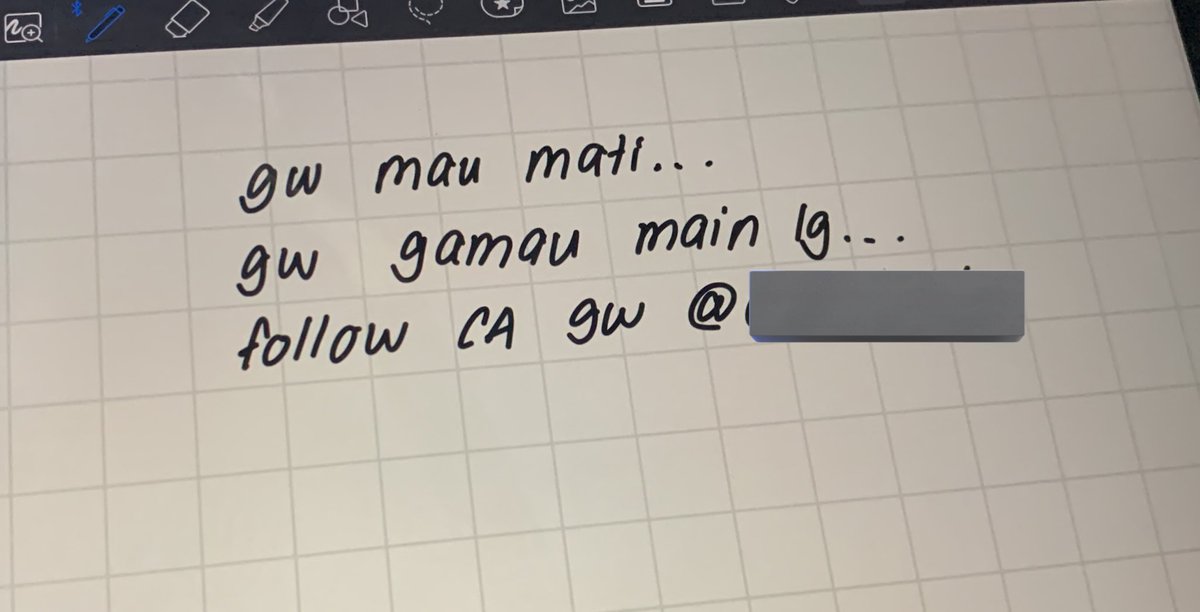 gw mau mati...
gw gamau main ig...
follow CA gw @